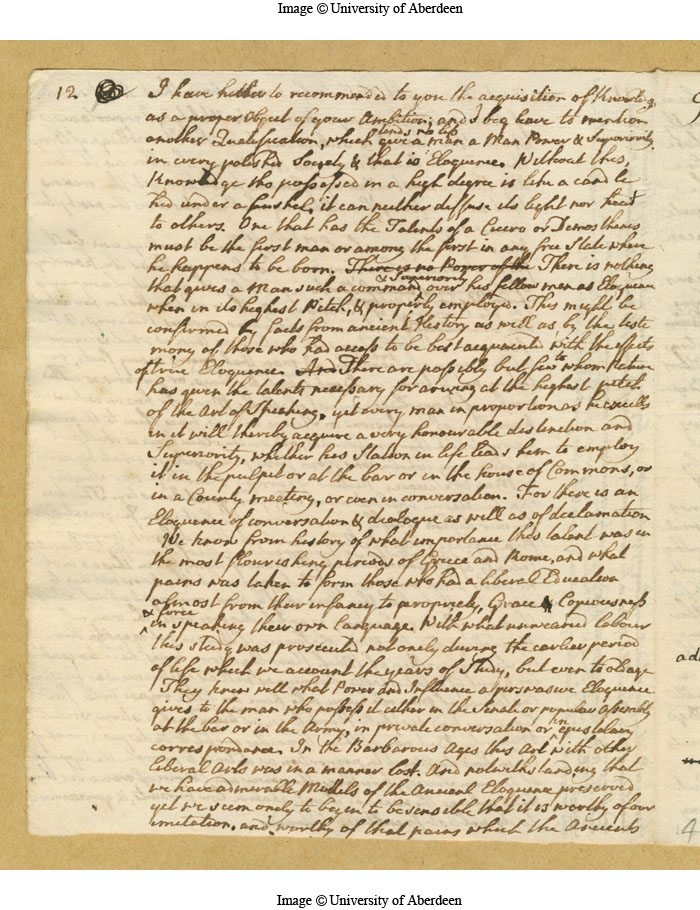 Image © University of Aberdeen
12
I have hitherto recommended to you the acquisition of Knowledge
as a proper Object of your Ambition, and I beg leave to mention
lends no less
another Qualification, which give a man a Man Power & Superiority
in every polished Society & that is Eloquence. Without this,
Knowledge tho possessed in a high degree is like a candle
hid under a bushel, it can neither diffuse its light nor heat
to others. One that has the Talents of a Cicero or Demosthenes
must be the first man or among the first in any free State where
he happens to be born. There is no Power of the There is nothing
& Superiority
that gives a Man such a command over his fellow men as Eloquence
when in its highest Pitch, & properly employed. This might be
confirmed by facts from ancient History as well as by the testi
mony of those who had access to be best acquainted with the effects
of true Eloquence. And There are possibly but few to whom Nature
has given the talents necessary for arriving at the highest pitch
of the Art of Speaking, yet every man in proportion as he excells
in it will thereby acquire a very honourable distinction and
Superiority, whether his Station in life leads him to employ
it in the pulpit or at the bar or in the house of Commons, or
in a County meeting, or even in conversation. For there is an
Eloquence of conversation & dialogue as well as of declamation
We know from history of what importance this talent was in
the most flourishing periods of Greece and Rome, and what
pains was taken to form those who had a liberal Education
almost from their infancy to propriety, Grace & Copiousness
& force
in speaking their own language. With what unwearied labour
this study was prosecuted not onely during the earlier period
of life which we account the years of Study, but even to old age
They knew well what Power and Influence a perswasive Eloquence
gives to the man who possess it either in the Senate or popular assembly
at the bar or in the Army, in private conversation or in epistolary
correspondance. In the Barbarous Ages this Art with other
liberal Arts was in a manner lost. And notwithstanding that
we have admirable Models of the Ancient Eloquence preserved
yet we seem onely to begin to be sensible that it is worthy of our
imitation, and worthy of that pains which the Ancients
ad
4
Image © University of Aberdeen